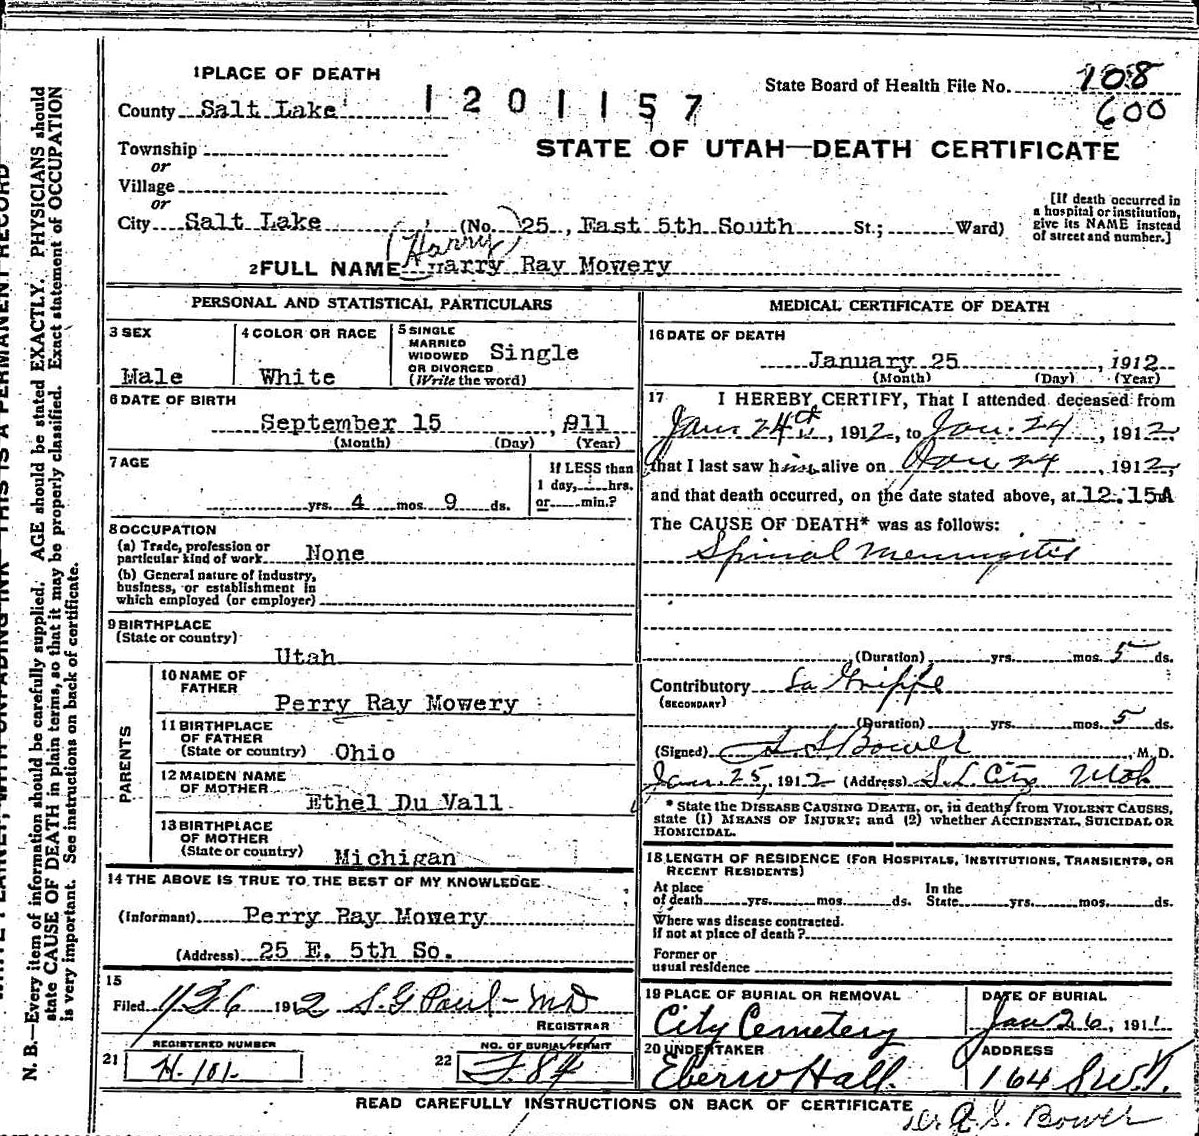 1 PLACE OF DEATH
State Board of Health File No. 108
600
County Salt Lake
1201157
Township
STATE OF UTAH—DEATH CERTIFICATE
or
Village
or
City Salt Lake (No. 25, East 5th South St.; Ward)
[If death occurred in
a hospital or institution,
give its NAME instead
of street and number.]
(Harry)
2 FULL NAME Harry Ray Mowery
PERSONAL AND STATISTICAL PARTICULARS
3 SEX
Male
4 COLOR OR RACE
White
5 SINGLE
MARRIED
WIDOWED
OR DIVORCED
(Write the word)
Single
6 DATE OF BIRTH
September 15, 911
(Month) (Day) (Year)
7 AGE
yrs. 4 mos. 9 ds.
If LESS than
1 day, hrs.
or min.?
8 OCCUPATION
(a) Trade, profession or
particular kind of work None
(b) General nature of industry,
business, or establishment in
which employed (or employer)
9 BIRTHPLACE
(State or country)
Utah
PARENTS
10 NAME OF
FATHER
Perry Ray Mowery
11 BIRTHPLACE
OF FATHER
(State or country) Ohio
12 MAIDEN NAME
OF MOTHER
Ethel Du Vall
13 BIRTHPLACE
OF MOTHER
(State or country) Michigan
14 THE ABOVE IS TRUE TO THE BEST OF MY KNOWLEDGE
(Informant) Perry Ray Mowery
(Address) 25 E. 5th So.
15
Filed 1/26 1912 S.G Paul - MD
REGISTRAR
21 REGISTERED NUMBER
H-101-
22 NO. OF BURIAL PERMIT
J.84
MEDICAL CERTIFICATE OF DEATH
16 DATE OF DEATH
January 25, 1912
(Month) (Day) (Year)
17 I HEREBY CERTIFY, That I attended deceased from
Jan. 24th, 1912, to Jan. 24, 1912,
that I last saw him alive on Jan 24, 1912,
and that death occurred, on the date stated above, at 12.15A
The CAUSE OF DEATH* was as follows:
Spinal Meningitis
(Duration) yrs. mos. 5 ds.
Contributory La Grippe
(SECONDARY)
(Duration) yrs. mos. 5 ds.
(Signed) Bower, M. D.
Jan. 25, 1912 (Address) S. L. City Utah
* State the DISEASE CAUSING DEATH, or, in deaths from VIOLENT CAUSES,
state (1) MEANS OF INJURY; and (2) whether ACCIDENTAL, SUICIDAL OR
HOMICIDAL.
18 LENGTH OF RESIDENCE (FOR HOSPITALS, INSTITUTIONS, TRANSIENTS, OR
RECENT RESIDENTS)
At place
of death yrs. mos. ds.
In the
State yrs. mos. ds.
Where was disease contracted.
If not at place of death?
Former or
usual residence
19 PLACE OF BURIAL OR REMOVAL
City Cemetery
DATE OF BURIAL
Jan 26, 1911
20 UNDERTAKER
Eber W Hall.
ADDRESS
164 S W.T.
READ CAREFULLY INSTRUCTIONS ON BACK OF CERTIFICATE
Dr. Bower
N. B.—Every item of information should be carefully supplied. AGE should be stated EXACTLY. PHYSICIANS should
state CAUSE OF DEATH in plain terms, so that it may be properly classified. Exact statement of OCCUPATION
is very important. See instructions on back of certificate.